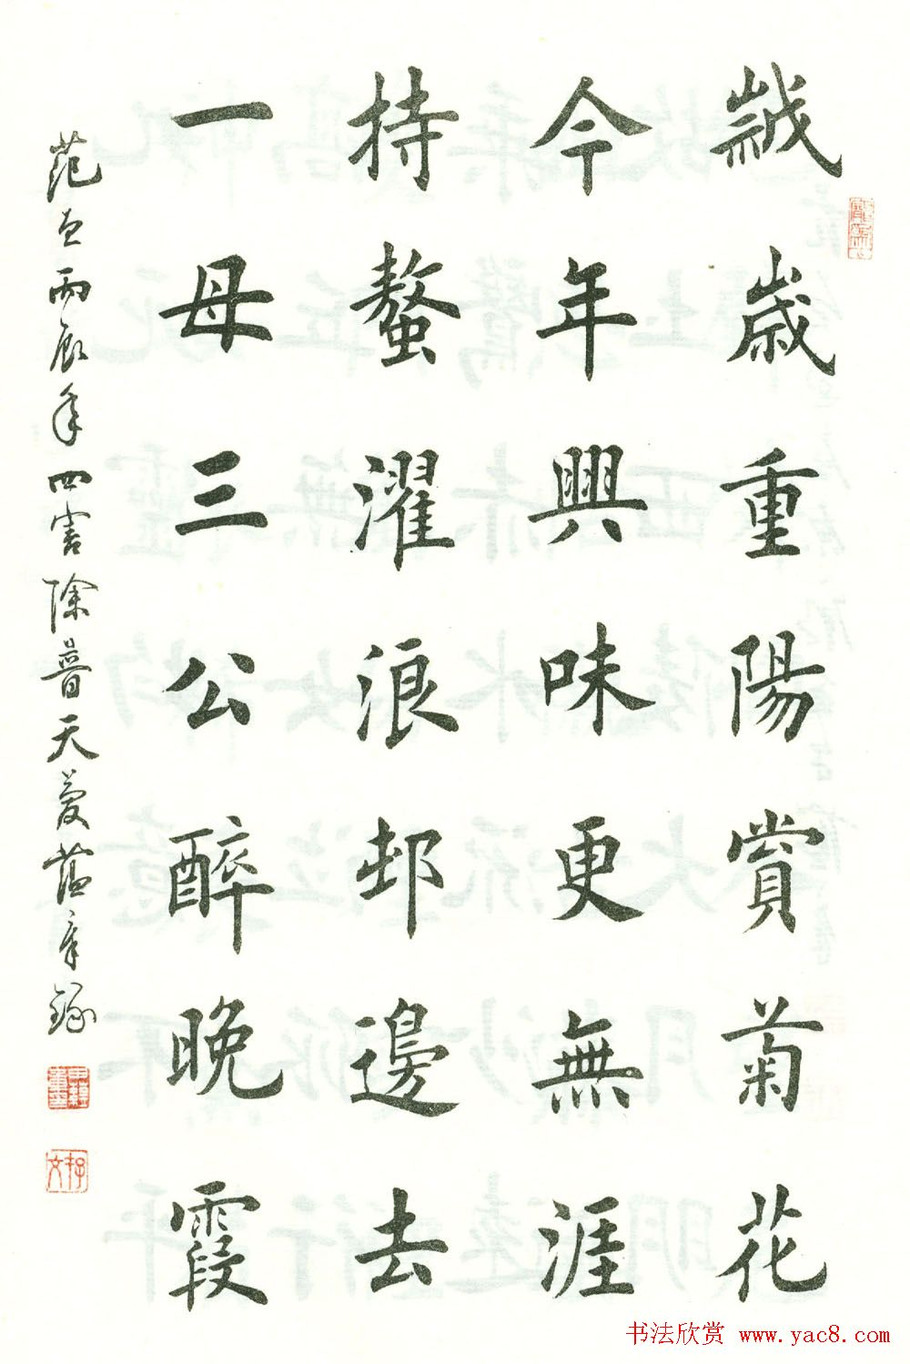 歲嵗重陽賞菊花
今年興味更無涯
持螯濯浪邨邊去
一母三公醉晚霞
范丙辰年四害除普天慶蘊章錄
书法欣赏 www.yac8.com